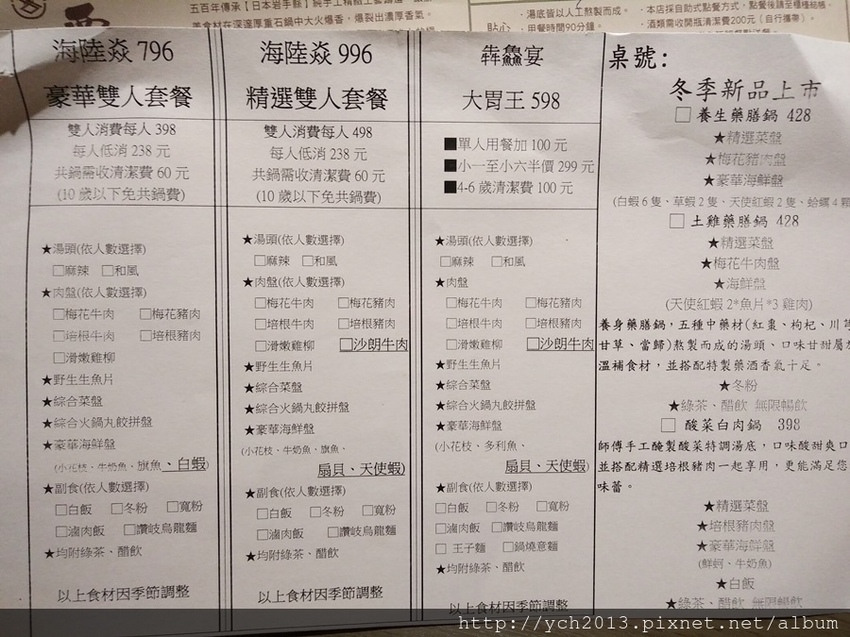 五百年傳承【日本岩手縣】純手工精緻
美食材在深邃厚重石鍋中大火爆香，爆裂出濃厚香氣
貼心
湯底皆以人工熬製而成。
用餐時間90分鐘。
本店採自助式點餐方式，點餐後請至櫃檯結帳。
酒類需收開瓶清潔費200元（自行攜帶）。
海陸焱 796
豪華雙人套餐
雙人消費每人 398
每人低消 238 元
共鍋需收清潔費 60 元
(10 歲以下免共鍋費)
★湯頭(依人數選擇)
□麻辣 □和風
★肉盤(依人數選擇)
□梅花牛肉 □梅花豬肉
□培根牛肉 □培根豬肉
□滑嫩雞柳
★野生生魚片
★綜合菜盤
★綜合火鍋丸餃拼盤
★豪華海鮮盤
(小花枝、牛奶魚、旗魚、白蝦)
★副食(依人數選擇)
□白飯 □冬粉 □寬粉
□滷肉飯 □讚岐烏龍麵
★均附綠茶、醋飲
以上食材因季節調整
海陸焱 996
精選雙人套餐
雙人消費每人 498
每人低消 238 元
共鍋需收清潔費 60 元
(10 歲以下免共鍋費)
★湯頭(依人數選擇)
□麻辣 □和風
★肉盤(依人數選擇)
□梅花牛肉 □梅花豬肉
□培根牛肉 □培根豬肉
□滑嫩雞柳 □沙朗牛肉
★野生生魚片
★綜合菜盤
★綜合火鍋丸餃拼盤
★豪華海鮮盤
(小花枝、牛奶魚、旗魚、
扇貝、天使蝦)
★副食(依人數選擇)
□白飯 □冬粉 □寬粉
□滷肉飯 □讚岐烏龍麵
★均附綠茶、醋飲
以上食材因季節調整
犇鱻宴
大胃王 598
■單人用餐加 100 元
■小一至小六半價 299 元
■4-6 歲清潔費 100 元
★湯頭(依人數選擇)
□麻辣 □和風
★肉盤
□梅花牛肉 □梅花豬肉
□培根牛肉 □培根豬肉
□滑嫩雞柳 □沙朗牛肉
★野生生魚片
★綜合菜盤
★綜合火鍋丸餃拼盤
★豪華海鮮盤
(小花枝、多利魚、
扇貝、天使蝦)
★副食(依人數選擇)
□白飯 □冬粉 □寬粉
□滷肉飯 □讚岐烏龍麵
□ 王子麵 □鍋燒意麵
★均附綠茶、醋飲
以上食材因季節調整
桌號:
冬季新品上市
□ 養生藥膳鍋 428
★精選菜盤
★梅花豬肉盤
★豪華海鮮盤
(白蝦 6 隻、草蝦 2 隻、天使紅蝦 2 隻、蛤蠣 4 顆
□ 土雞藥膳鍋 428
★精選菜盤
★梅花牛肉盤
★海鮮盤
(天使紅蝦 2*魚片*3 雞肉)
養身藥膳鍋，五種中藥材(紅棗、枸杞、川芎
甘草、當歸)熬製而成的湯頭、口味甘甜屬
溫補食材，並搭配特製藥酒香氣十足。
★冬粉
★綠茶、醋飲 無限暢飲
□ 酸菜白肉鍋 398
師傅手工醃製酸菜特調湯底，口味酸甜爽口
並搭配精選培根豬肉一起享用，更能滿足您
味蕾。
★精選菜盤
★培根豬肉盤
★豪華海鮮盤
(鮮蚵、牛奶魚)
★白飯
★綠茶、醋飲 無限暢飲
http://ych2013.pixnet.net/album